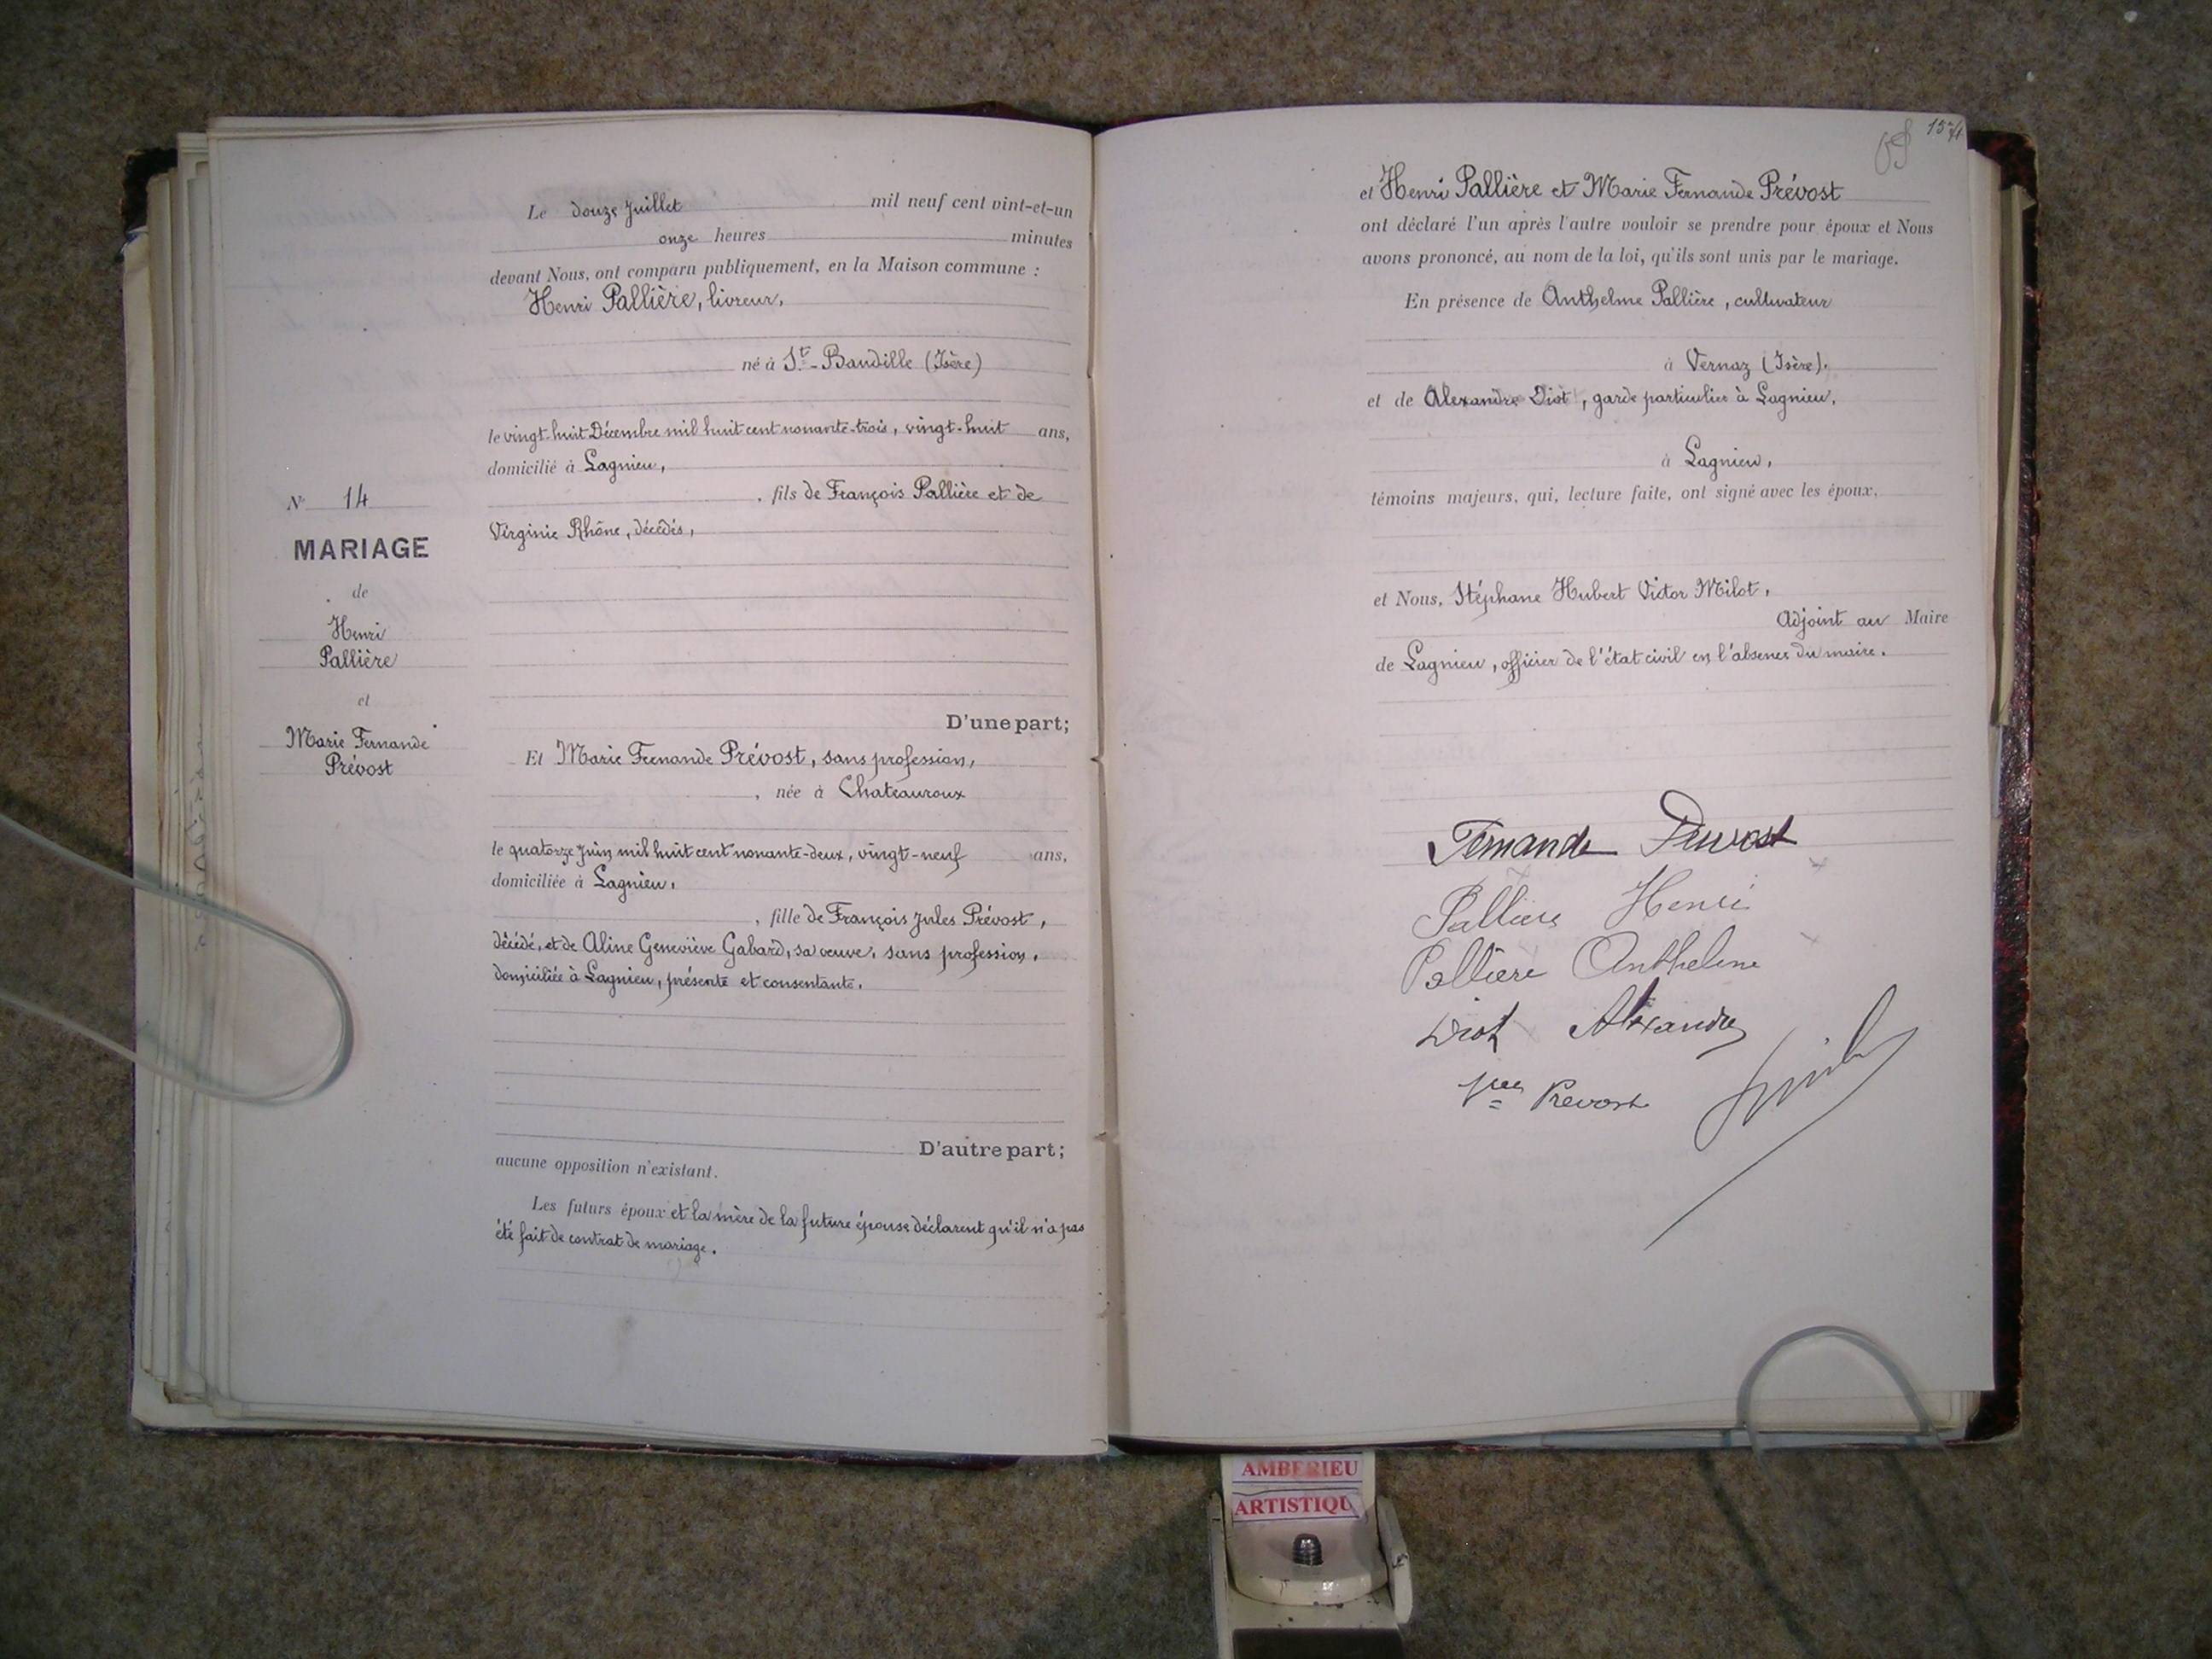 Le douze Juillet mil neuf cent vint-et-un
onze heures minutes
devant Nous, ont comparu publiquement, en la Maison commune :
Henri Pallière, livreur,
né à St-Baudille (Isère)
le vingt-huit Décembre mil huit cent nonante-trois, vingt-huit ans,
domicilié à Lagnieu,
, fils de François Pallière et de
Virginie Rhône, décédés,
D'une part;
Et Marie Fernande Prévost, sans profession,
, née à Chateauroux
le quatorze Juin mil huit cent nonante-deux, vingt-neuf ans,
domiciliée à Lagnieu,
, fille de François Jules Prévost,
décédé, et de Aline Geneviève Gabard, sa veuve, sans profession,
domiciliée à Lagnieu, présente et consentante.
D'autre part;
aucune opposition n'existant.
Les futurs époux et la mère de la future épouse déclarent qu'il n'a pas
été fait de contrat de mariage.
N° 14
MARIAGE
de
Henri
Pallière
et
Marie Fernande
Prévost
et Henri Pallière et Marie Fernande Prévost
ont déclaré l'un après l'autre vouloir se prendre pour époux et Nous
avons prononcé, au nom de la loi, qu'ils sont unis par le mariage.
En présence de Anthelme Pallière, cultivateur
à Vernaz (Isère).
et de Alexandre Diot, garde particulier à Lagnieu,
à Lagnieu,
témoins majeurs, qui, lecture faite, ont signé avec les époux,
et Nous, Stéphane Hubert Victor Milot,
Adjoint au Maire
de Lagnieu, officier de l'état civil en l'absence du maire.
Fernande Prevost
Pallière Henri
Pallière Anthelme
Diot Alexandre
Vve Prevost
AMBERIEU
ARTISTIQU